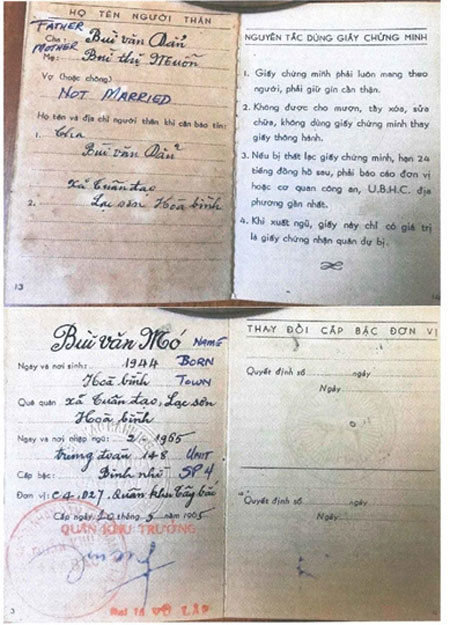 HỌ TÊN NGƯỜI THÂN
FATHER
Cha: Bùi văn Dẩn
MOTHER
Mẹ: Bùi thị Nguồn
Vợ (hoặc chồng)
NOT MARRIED
Họ tên và địa chỉ người thân khi cần báo tin:
1. Cha
Bùi văn Dẩn
xã Tuân đạo
2. Lạc sơn Hoà bình
13
NGUYÊN TẮC DÙNG GIẤY CHỨNG MINH
1. Giấy chứng minh phải luôn mang theo
người, phải giữ gìn cẩn thận.
2. Không được cho mượn, tẩy xóa, sửa
chữa, không dùng giấy chứng minh thay
giấy thông hành.
3. Nếu bị thất lạc giấy chứng minh, hạn 24
tiếng đồng hồ sau, phải báo cáo đơn vị
hoặc cơ quan công an, U.B.H.C. địa
phương gần nhất.
4. Khi xuất ngũ, giấy này chỉ có giá trị
là giấy chứng nhận quân dự bị.
Bùi văn Mó NAME
Ngày và nơi sinh: 1944 BORN
Hoà bình TOWN
Quê quán xã Tuân đạo, Lạc sơn
Hoà bình
Ngày và nơi nhập ngũ: 2/1965
trung đoàn 148 UNIT
Cấp bậc: Binh nhì SP4
Đơn vị: C4, D27, Quân khu Tây bắc
Cấp ngày 20 tháng 5 năm 1965
QUÂN KHU TRƯỞNG
3
THAY ĐỔI CẤP BẬC ĐƠN VỊ
Quyết định số ngày
Ngày
Quyết định số ngày
Ngày